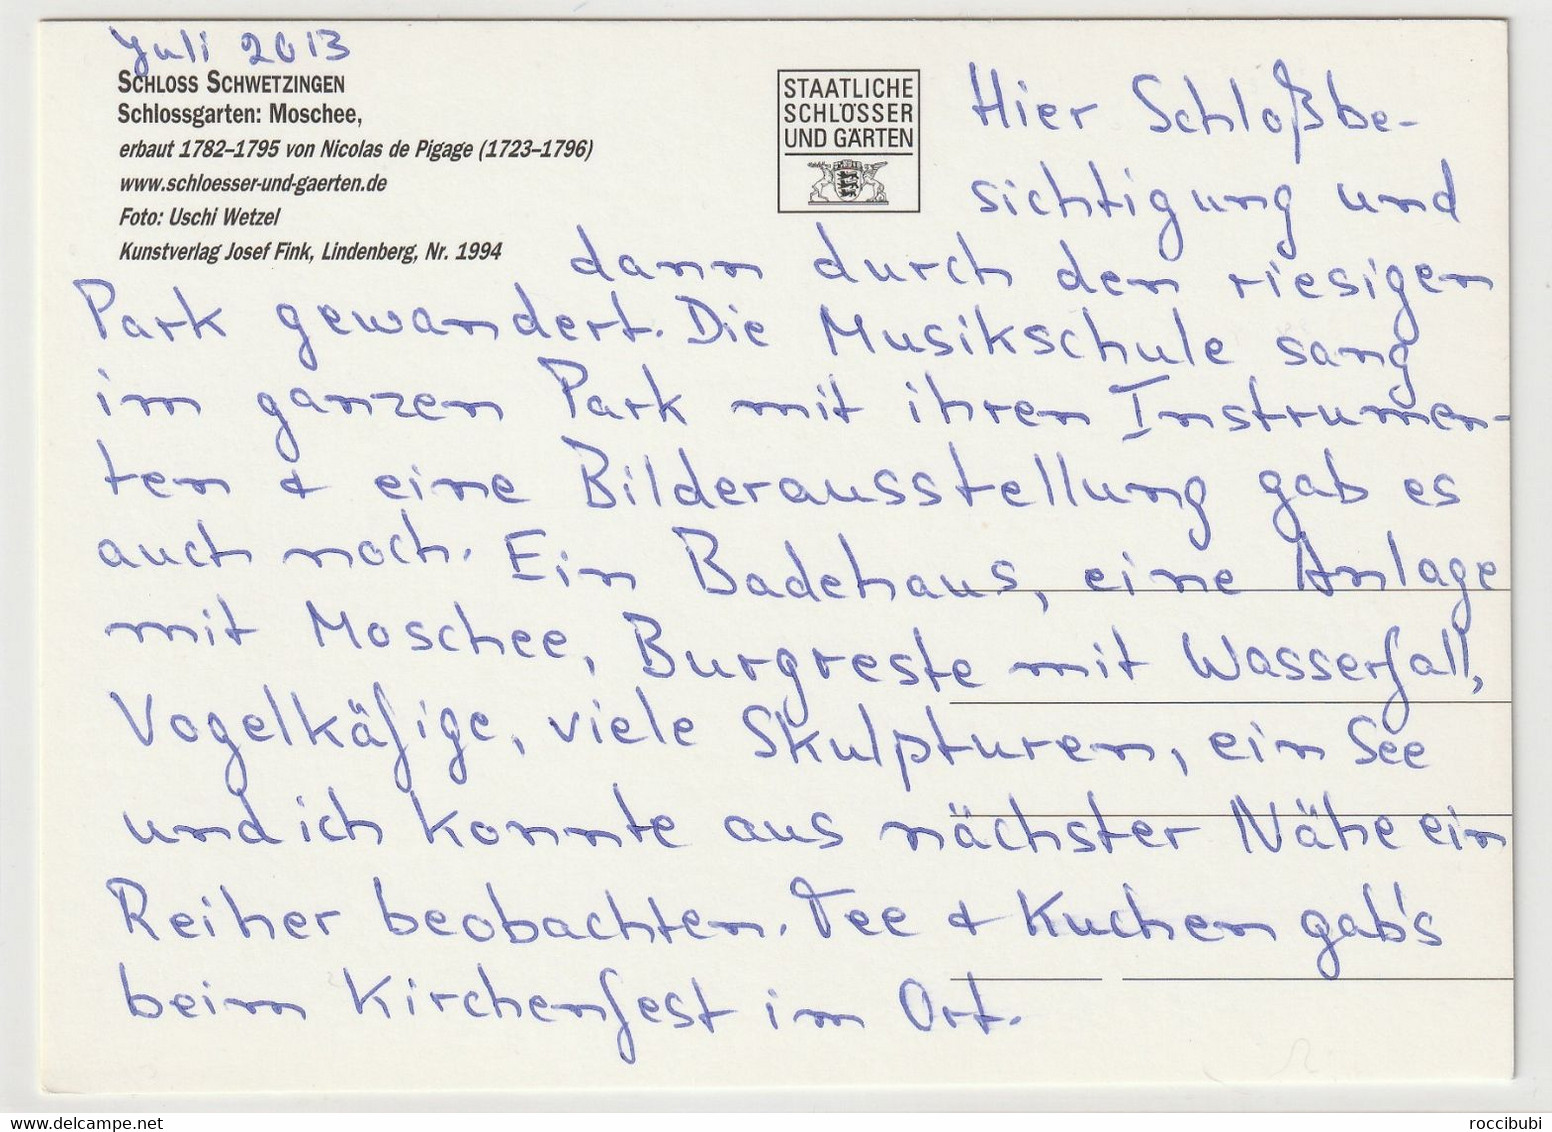 Juli 2013
SCHLOSS SCHWETZINGEN
Schlossgarten: Moschee,
erbaut 1782–1795 von Nicolas de Pigage (1723–1796)
www.schloesser-und-gaerten.de
Foto: Uschi Wetzel
Kunstverlag Josef Fink, Lindenberg, Nr. 1994
STAATLICHE
SCHLÖSSER
UND GÄRTEN
Hier Schloßbe-
sichtigung und
dann durch den riesigen
Park gewandert. Die Musikschule sang
im ganzen Park mit ihren Instrumen-
ten & eine Bilderausstellung gab es
auch noch. Ein Badehaus, eine Anlage
mit Moschee, Burgreste mit Wasserfall,
Vogelkäfige, viele Skulpturen, ein See
und ich konnte aus nächster Nähe ein
Reiher beobachten. Tee & Kuchen gab's
beim Kirchenfest im Ort.
delcampe.net
roccibubi